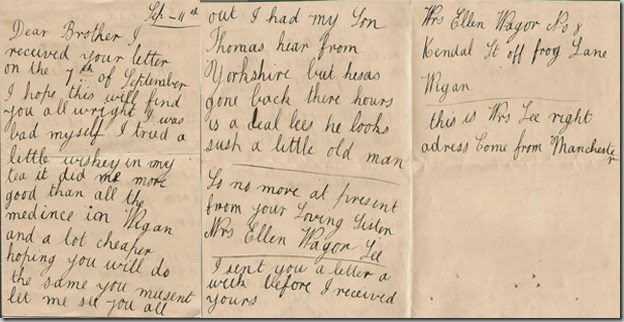 Sep - 11th
Dear Brother I
received your letter
on the 7th of September
I hope this will find
you all wright I was
bad myself I tried a
little wiskey in my
tea it did me more
good than all the
medince ion Wigan
and a lot cheaper
hoping you will do
the same you musent
let me see you all
out I had my Son
Thomas hear from
Yorkshire but hesas
gone back there hours
is a deal lees he looks
sush a little old man
Is no more at present
from your Loving Sister
Mrs Ellen Wagor Lee
I sent you a letter a
week before I received
yours
Mrs Ellen Wagor No 8
Kendal St off frog Lane
Wigan
this is Mrs Lee right
adress Come from Manchester